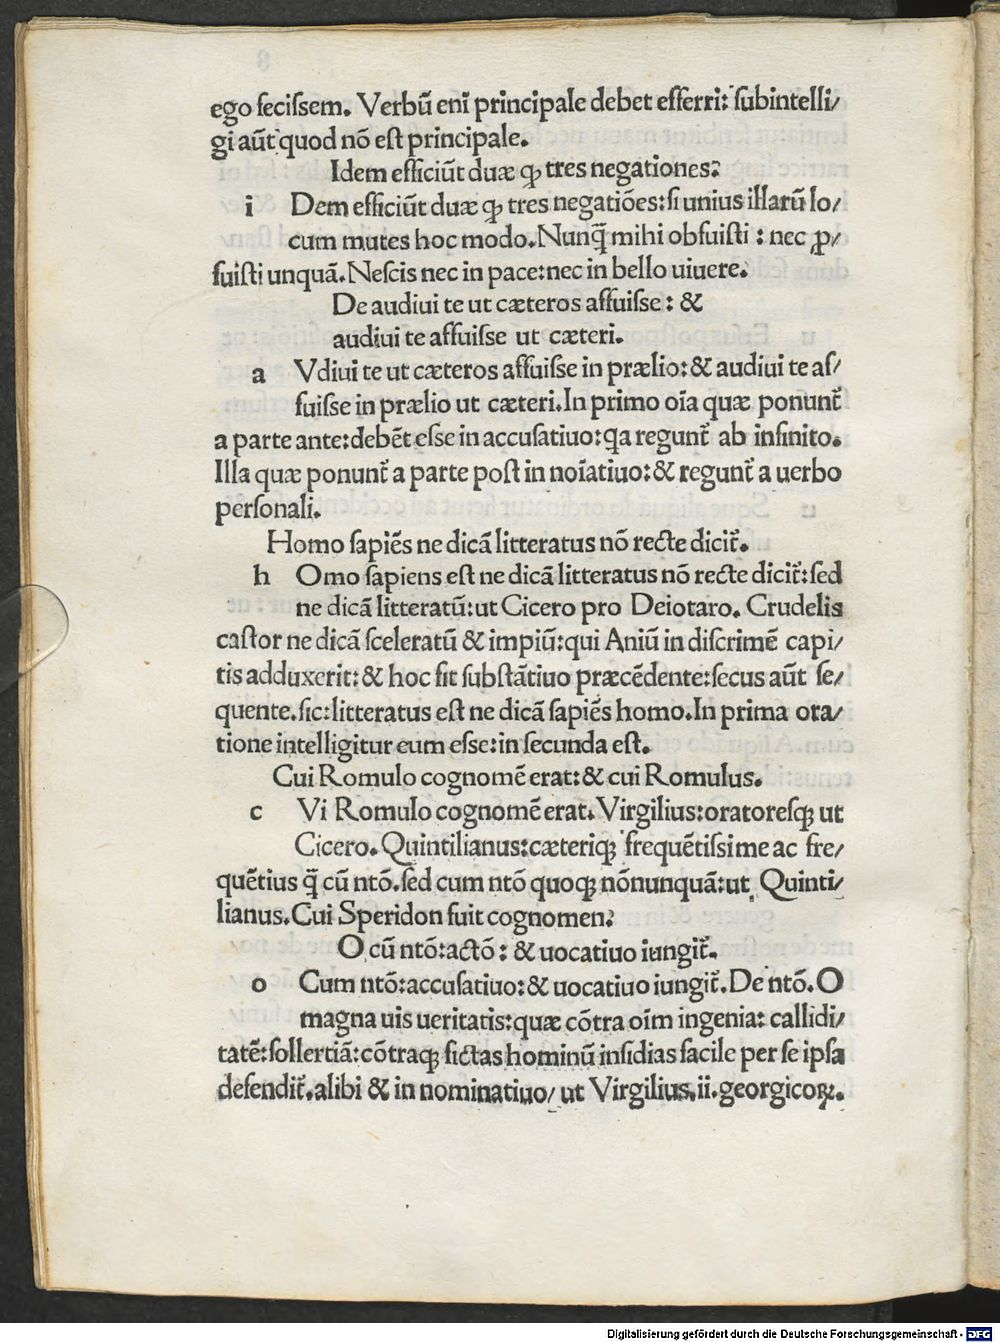 ego feciſſem. Verbū enī principale debet efferri: ſubintelli/
gi aūt quod nō eſt principale.
Idem efficiūt duæ ꝙ tres negationes?
i Dem efficiūt duæ ꝙ tres negatiōes: ſi unius illarū lo/
cum mutes hoc modo. Nunq̄ mihi obfuiſti : nec ꝓ/
fuiſti unquā. Neſcis nec in pace: nec in bello uiuere.
De audiui te ut cæteros affuiſſe: &
audiui te affuiſſe ut cæteri.
a Vdiui te ut cæteros affuiſſe in prælio: & audiui te af/
fuiſſe in prælio ut cæteri. In primo oīa quæ ponunt᷑
a parte ante: debēt eſſe in accuſatiuo: qa regunt᷑ ab infinito.
Illa quæ ponunt᷑ a parte poſt in noīatiuo: & regunt᷑ a uerbo
perſonali.
Homo ſapiēs ne dicā litteratus nō recte dicit᷑.
h Omo ſapiens eſt ne dicā litteratus nō recte dicit᷑: ſed
ne dicā litteratū: ut Cicero pro Deiotaro. Crudelis
caſtor ne dicā ſceleratū & impiū: qui Aniū in diſcrimē capi/
tis adduxerit: & hoc fit ſubſtātiuo præcēdente: ſecus aūt ſe/
quente. ſic: litteratus eſt ne dicā ſapiēs homo. In prima ora/
tione intelligitur eum eſſe: in ſecunda eſt.
Cui Romulo cognomē erat: & cui Romulus.
c Vi Romulo cognomē erat. Virgilius: oratoreſq; ut
Cicero. Quintilianus: cæteriq; frequētiſſime ac fre/
quētius q̄ cū ntō. ſed cum ntō quoq; nōnunquā: ut Quinti/
lianus. Cui Speridon fuit cognomen?
O cū ntō: actō : & uocatiuo iungit᷑.
o Cum ntō: accuſatiuo: & uocatiuo iungit᷑. De ntō. O
magna uis ueritatis: quæ cōtra oīm ingenia: callidi/
tatē: ſollertiā: cōtraq; fictas hominū inſidias facile per ſe ipſa
defendit᷑. alibi & in nominatiuo/ ut Virgilius. ii. georgicoꝝ.
Digitalisierung gefördert durch die Deutsche Forschungsgemeinschaft - DFG